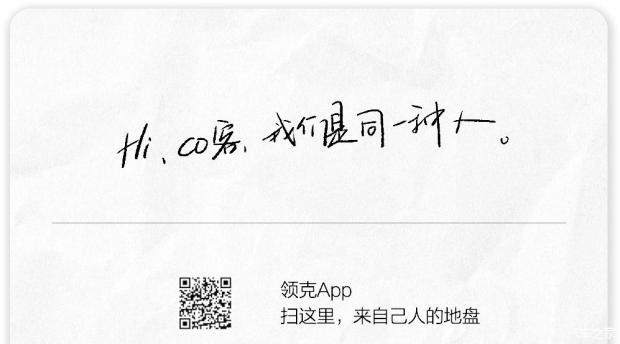 Hi、co客、我们是同一种人。
领克App
扫这里，来自己人的地盘